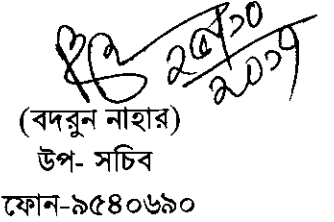 ২০১৭
(বদরুন নাহার)
উপ- সচিব
ফোন-৯৫৪০৬৯০